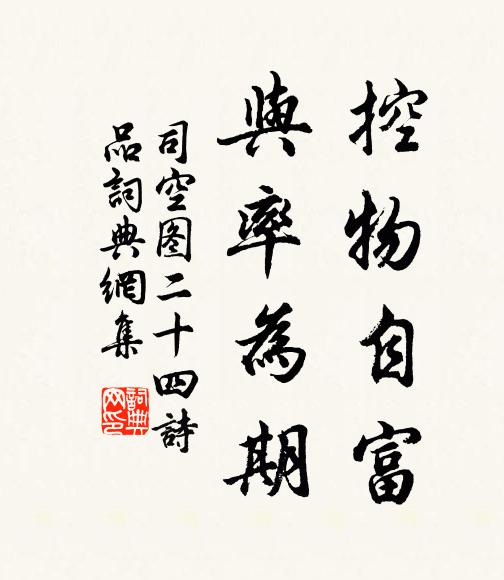 控物自富
與率為期
司空图二十四詩
品詞典網集
詞典
网印